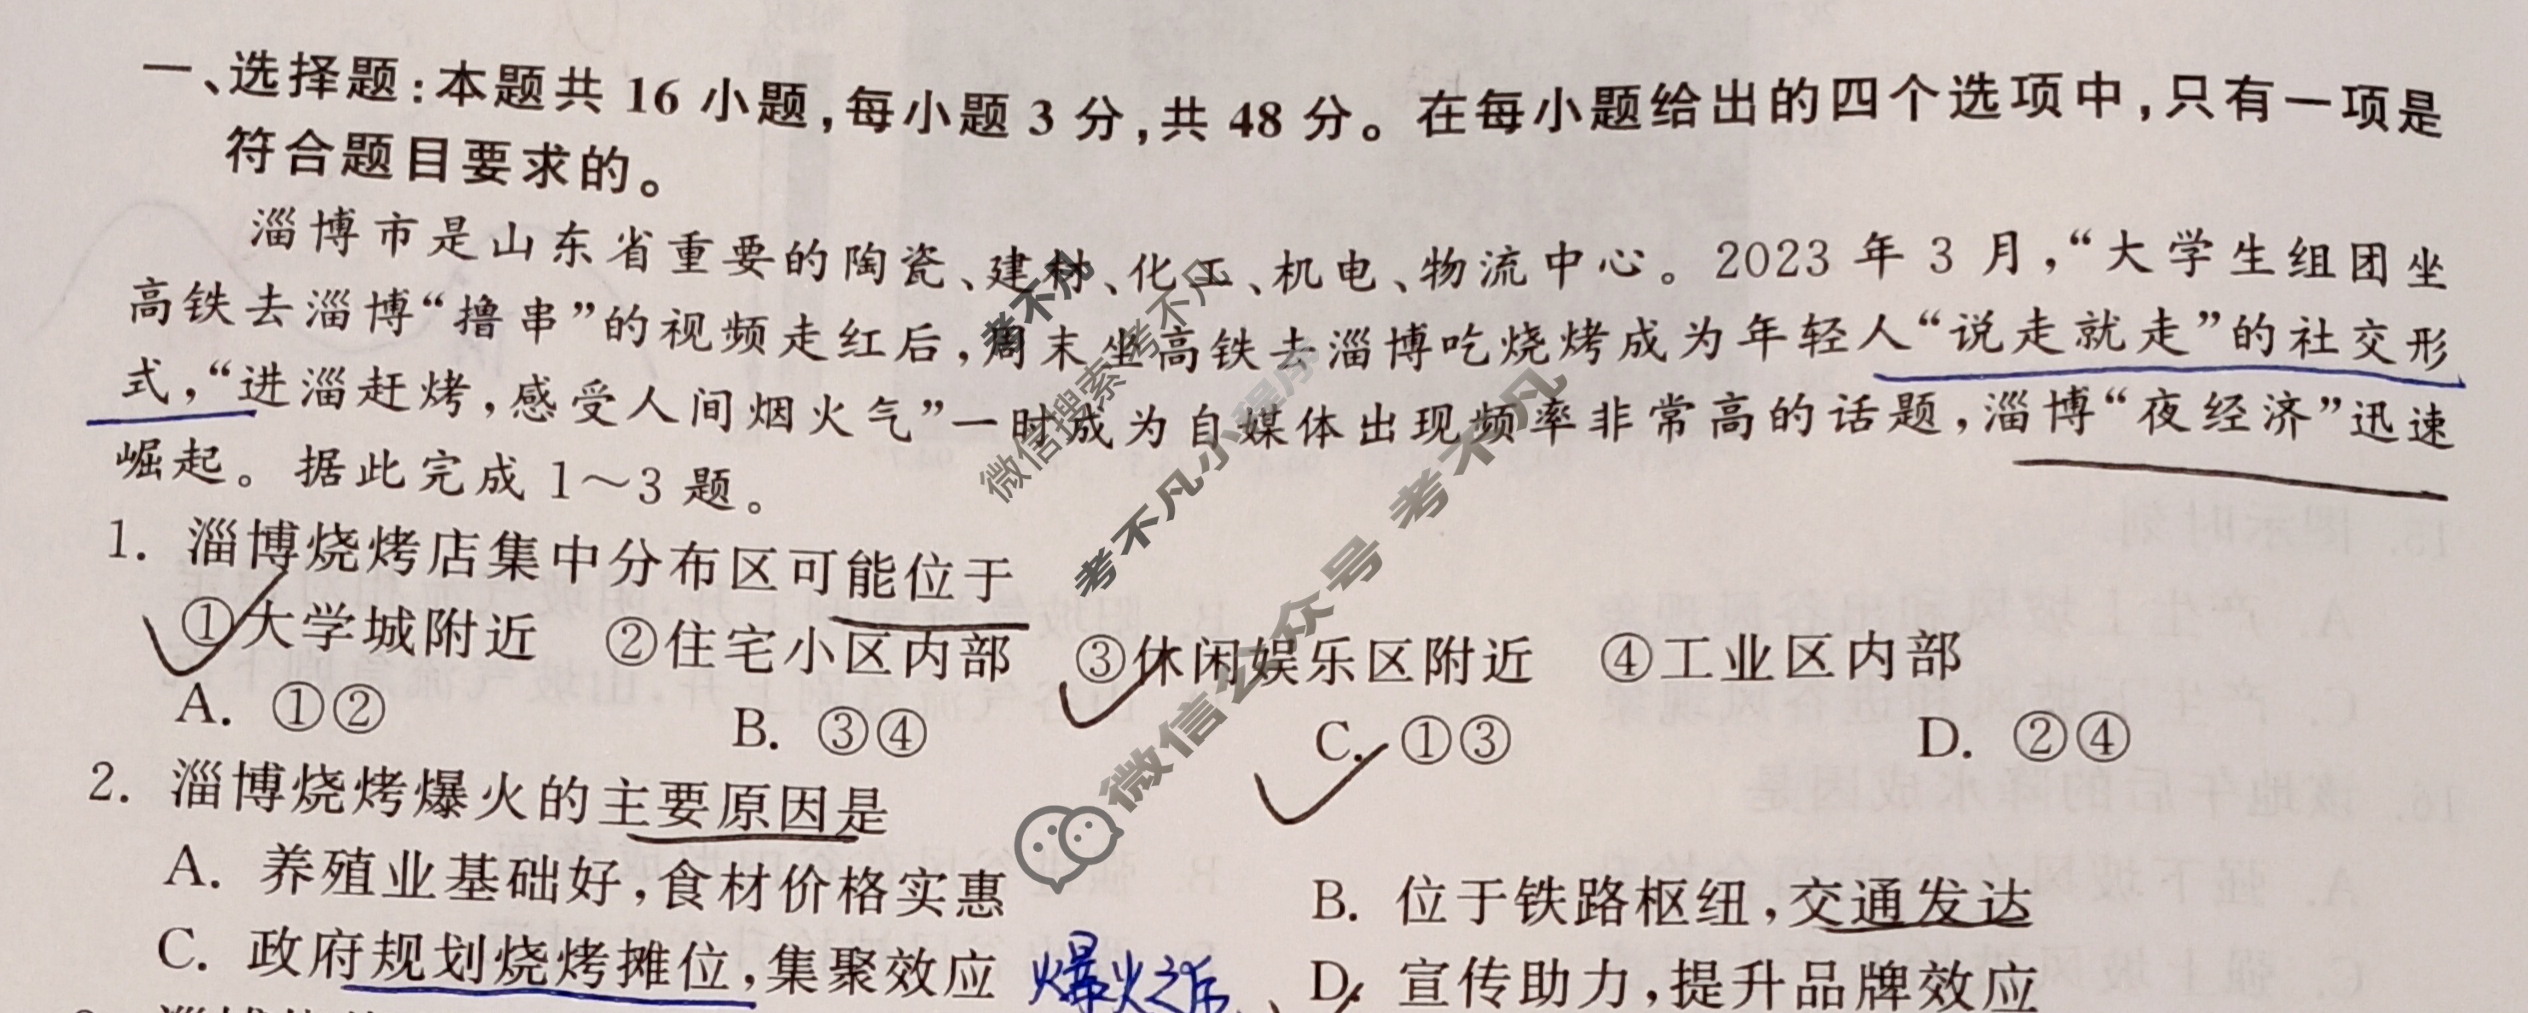 一、选择题:本题共 16 小题,每小题 3 分,共 48 分。在每小题给出的四个选项中,只有一项是
符合题目要求的。
淄博市是山东省重要的陶瓷、建材、化工、机电、物流中心。2023 年 3 月,“大学生组团坐
高铁去淄博“撸串”的视频走红后,周末坐高铁去淄博吃烧烤成为年轻人“说走就走”的社交形
式,“进淄赶烤,感受人间烟火气”一时成为自媒体出现频率非常高的话题,淄博“夜经济”迅速
崛起。据此完成 1~3 题。
1. 淄博烧烤店集中分布区可能位于
①大学城附近 ②住宅小区内部 ③休闲娱乐区附近 ④工业区内部
A. ①② B. ③④ C. ①③ D. ②④
2. 淄博烧烤爆火的主要原因是
A. 养殖业基础好,食材价格实惠 B. 位于铁路枢纽,交通发达
C. 政府规划烧烤摊位,集聚效应 爆火之后 D. 宣传助力,提升品牌效应
考不凡
微信搜索 考不凡
考不凡小程序
微信公众号 考不凡